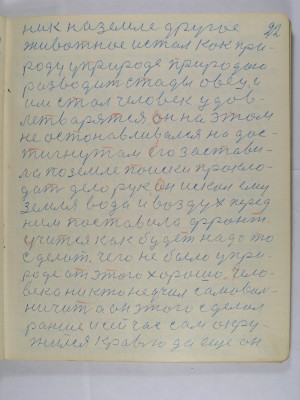 22
ник на земле другое
животное и стал как при-
роду у природе природою
разводит стады овец и
им стал человек удов-
летварятся он на этом
не остонавливался на дос-
тигнутам его застави-
ла по земле поиски прокла-
дат дело рук Он искал ему
земля вода и воздух перед
ним поставила фронт
учится как будет надо то
сделат. чего не было у при-
роде от этого хорошо, чело-
века никто не учил самовол-
ничит а он этого сделал
ранше и сейчас сам окру-
жился Кравю да еще он